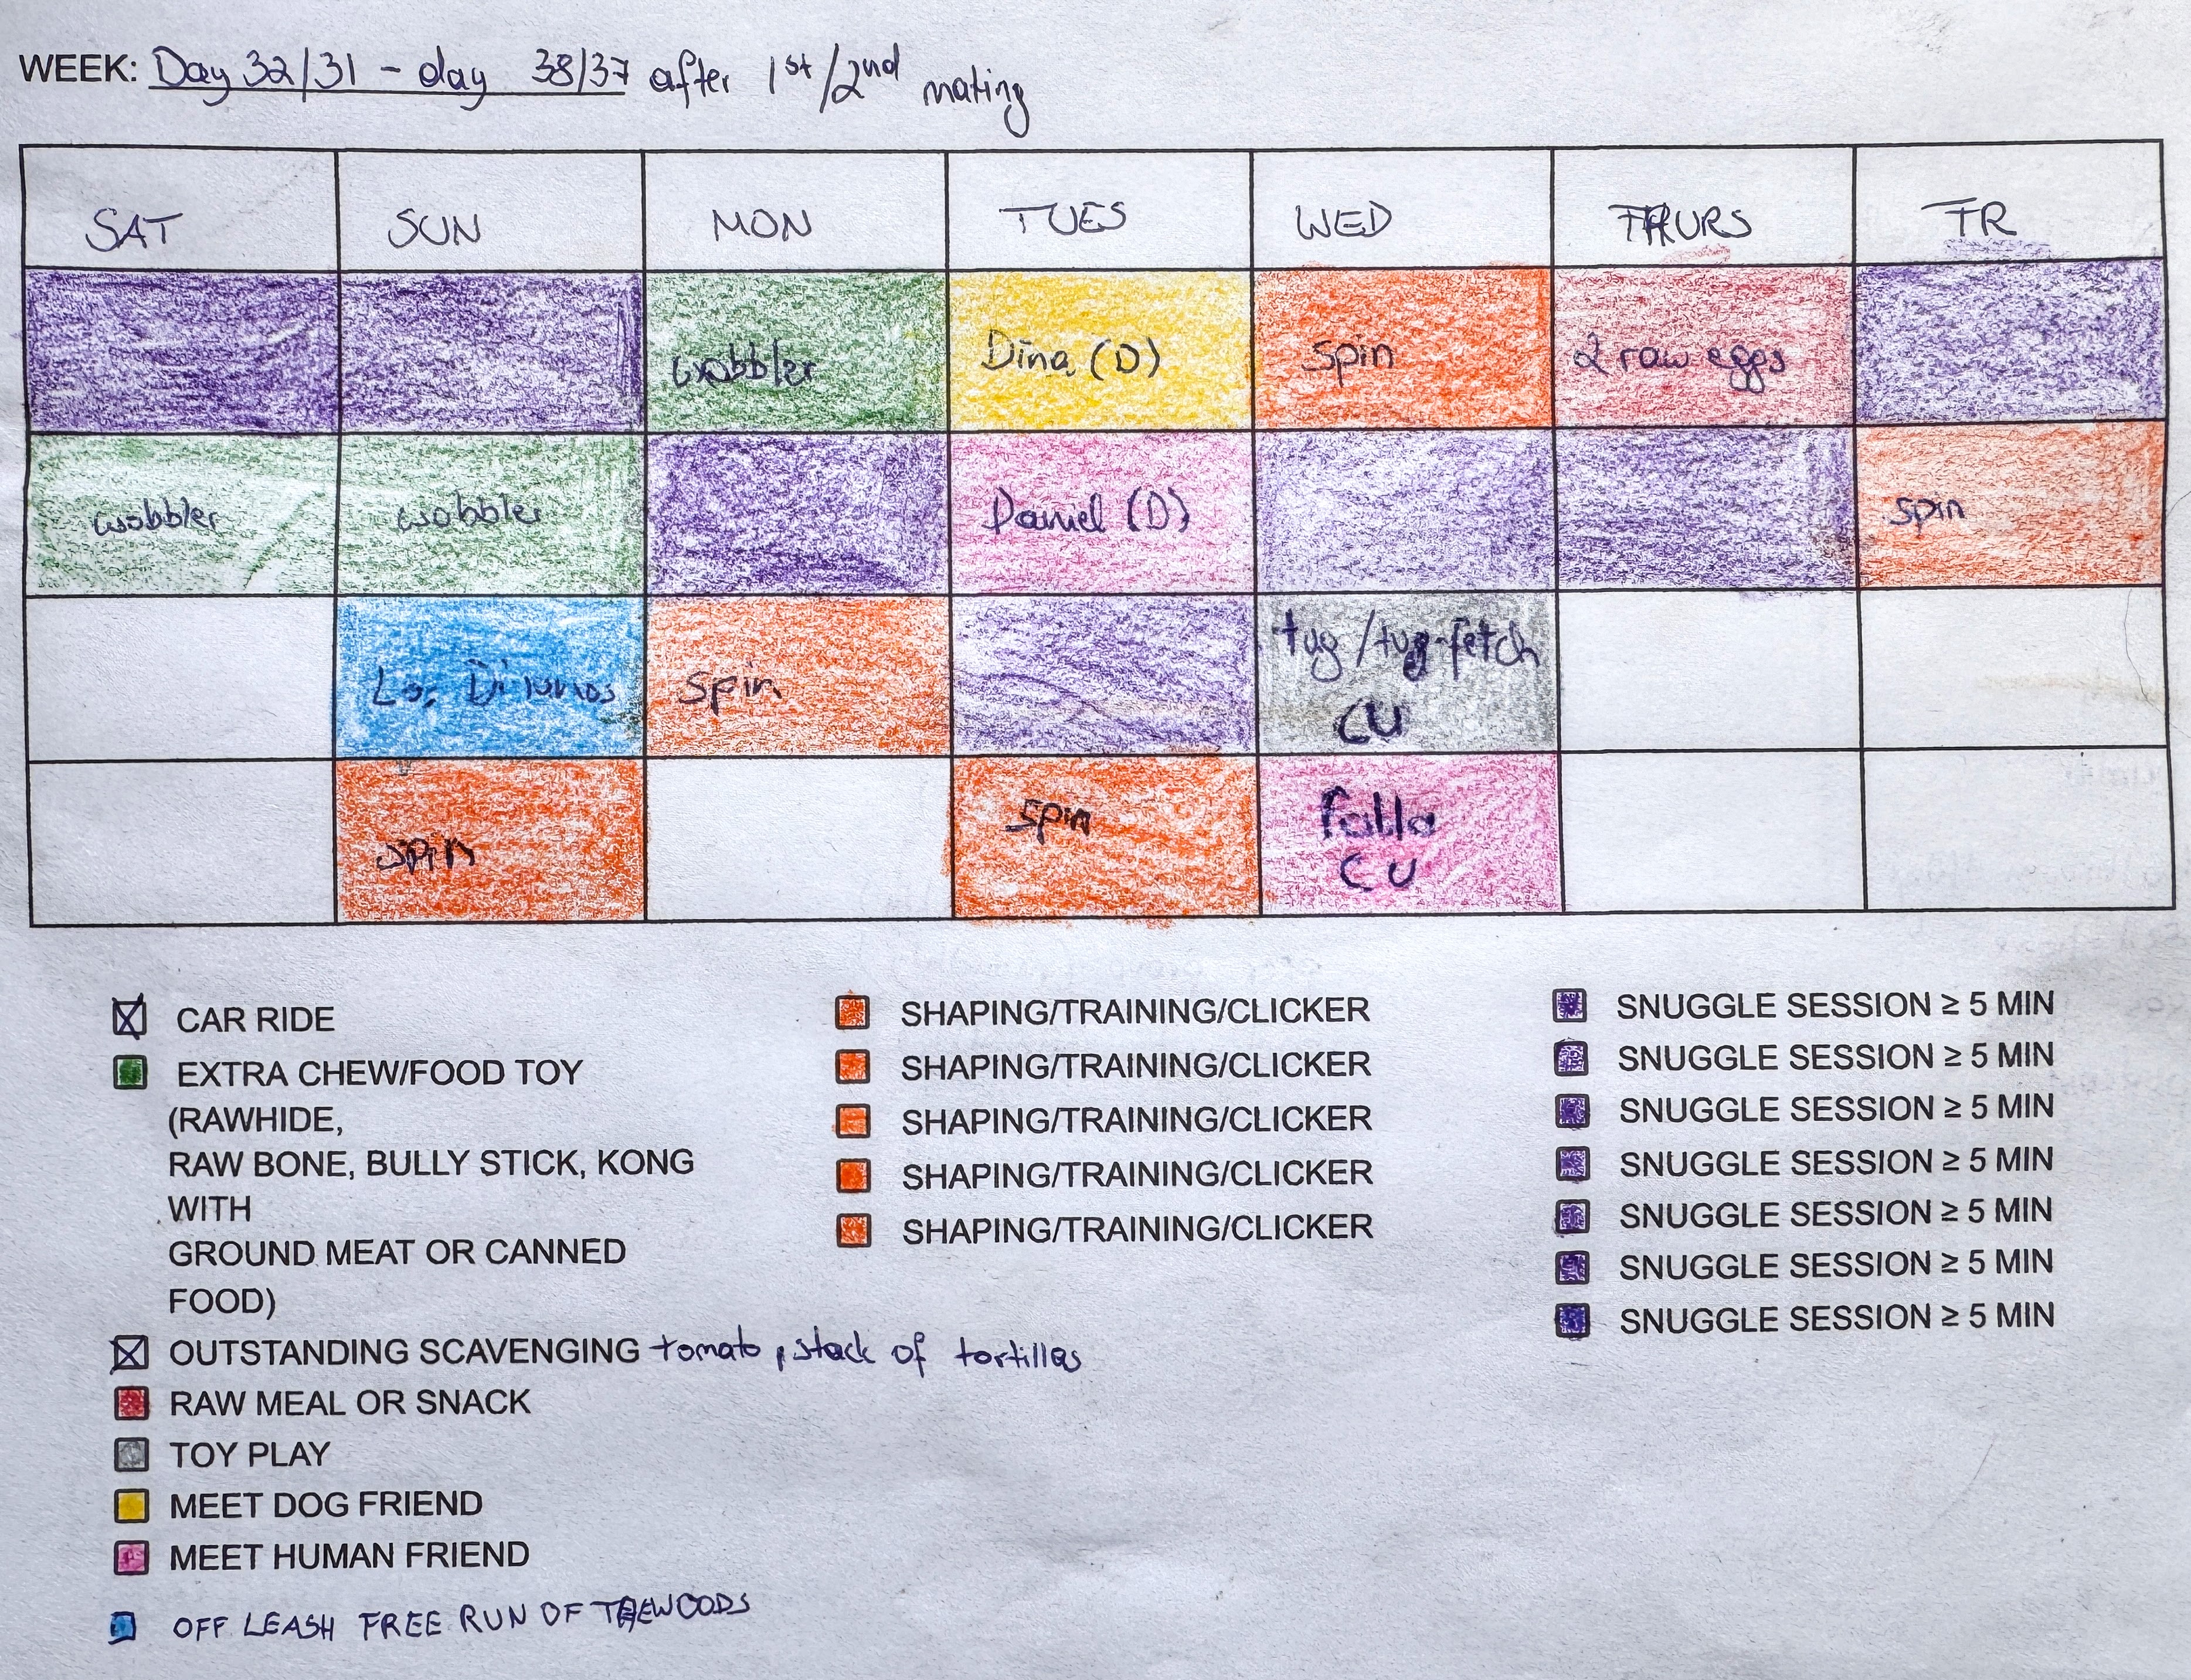 WEEK: Day 32/31 - day 38/37 after 1st/2nd mating
SAT SUN MON TUES WED THURS FR
wobbler Dina (D) spin 2 raw eggs
wobbler wobbler Daniel (D) spin
spin tug/tug-fetch
CU
spin spin
CU
CAR RIDE
EXTRA CHEW/FOOD TOY
(RAWHIDE,
RAW BONE, BULLY STICK, KONG
WITH
GROUND MEAT OR CANNED
FOOD)
OUTSTANDING SCAVENGING tomato, stack of tortillas
RAW MEAL OR SNACK
TOY PLAY
MEET DOG FRIEND
MEET HUMAN FRIEND
OFF LEASH FREE RUN OF THE WOODS
SHAPING/TRAINING/CLICKER
SHAPING/TRAINING/CLICKER
SHAPING/TRAINING/CLICKER
SHAPING/TRAINING/CLICKER
SHAPING/TRAINING/CLICKER
SNUGGLE SESSION ≥ 5 MIN
SNUGGLE SESSION ≥ 5 MIN
SNUGGLE SESSION ≥ 5 MIN
SNUGGLE SESSION ≥ 5 MIN
SNUGGLE SESSION ≥ 5 MIN
SNUGGLE SESSION ≥ 5 MIN
SNUGGLE SESSION ≥ 5 MIN